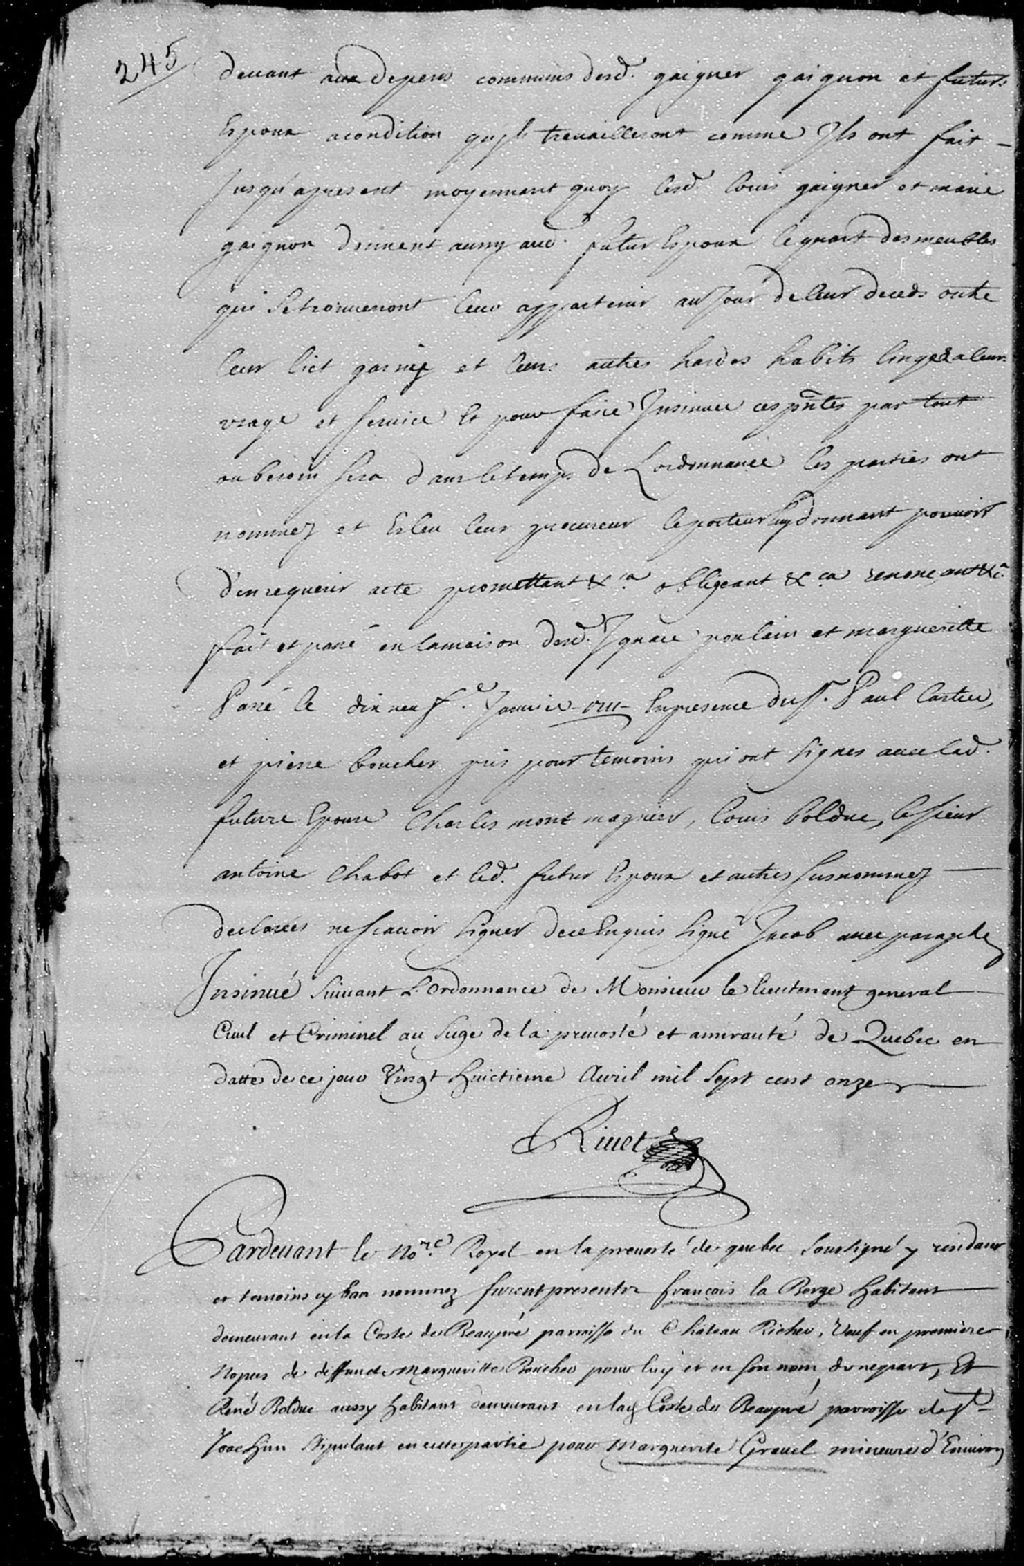 245
devant aux depens communs desd. gaigner gaignon et futur
Espoux acondition quyls travailleront comme Ils ont fait
Jusqu'apresent moyennant quoy lesd. Louis gaigner et marie
gaignon donnent aussy aud. futur Espoux le quart des meubles
qui se trouveront leur appartenir au Jour de leur deceds outre
leur lict garnij et leurs autres hardes habits linges a leur
usage et service Et pour faire Insinuer ces pntes par tout
ou besoin sera dans le temps de L'ordonnance les parties ont
nommez et Esleu leur procureur le porteur luy donnant pouvoir
d'en requerir acte promettant &ca obligeant &ca renoncant &c
fait et passé en la maison desd. Ignace poulain et margueritte
Paré le dix neufe. Janvier 1711 En presence du Sr. Paul Cartier
et pierre boucher pris pour temoins qui ont signes avec lad.
future Epouse Charles mont magnier, Louis bolduc, le sieur
antoine Chabot et led. futur Espoux et autres susnommez
declarés ne scavoir signer de ce Enquis signé Jacob avec paraphe
Insinué suivant L'ordonnance de Monsieur le lieutenant general
Civil et Criminel au siege de la prevosté et amirauté de Quebec en
datte de ce jour Vingt huictieme Avril mil sept cent onze
Rivet
Pardevant le Nore. Royal en la prevosté de quebec soussigné y residant
et temoins cy bas nommez furent presents francois la Berge habitant
demeurant en la Coste de Beaupré parroisse du Chateau Richer, Veuf en premiere
Nopces de deffuncte Marguerite Boucher pour luy et en son nom d'une part, Et
René Bolduc aussy habitant demeurant en lad Coste de Beaupré parroisse de St
Joachim stipulant en cette partie pour Marguerite Gravel mineure d'Environ